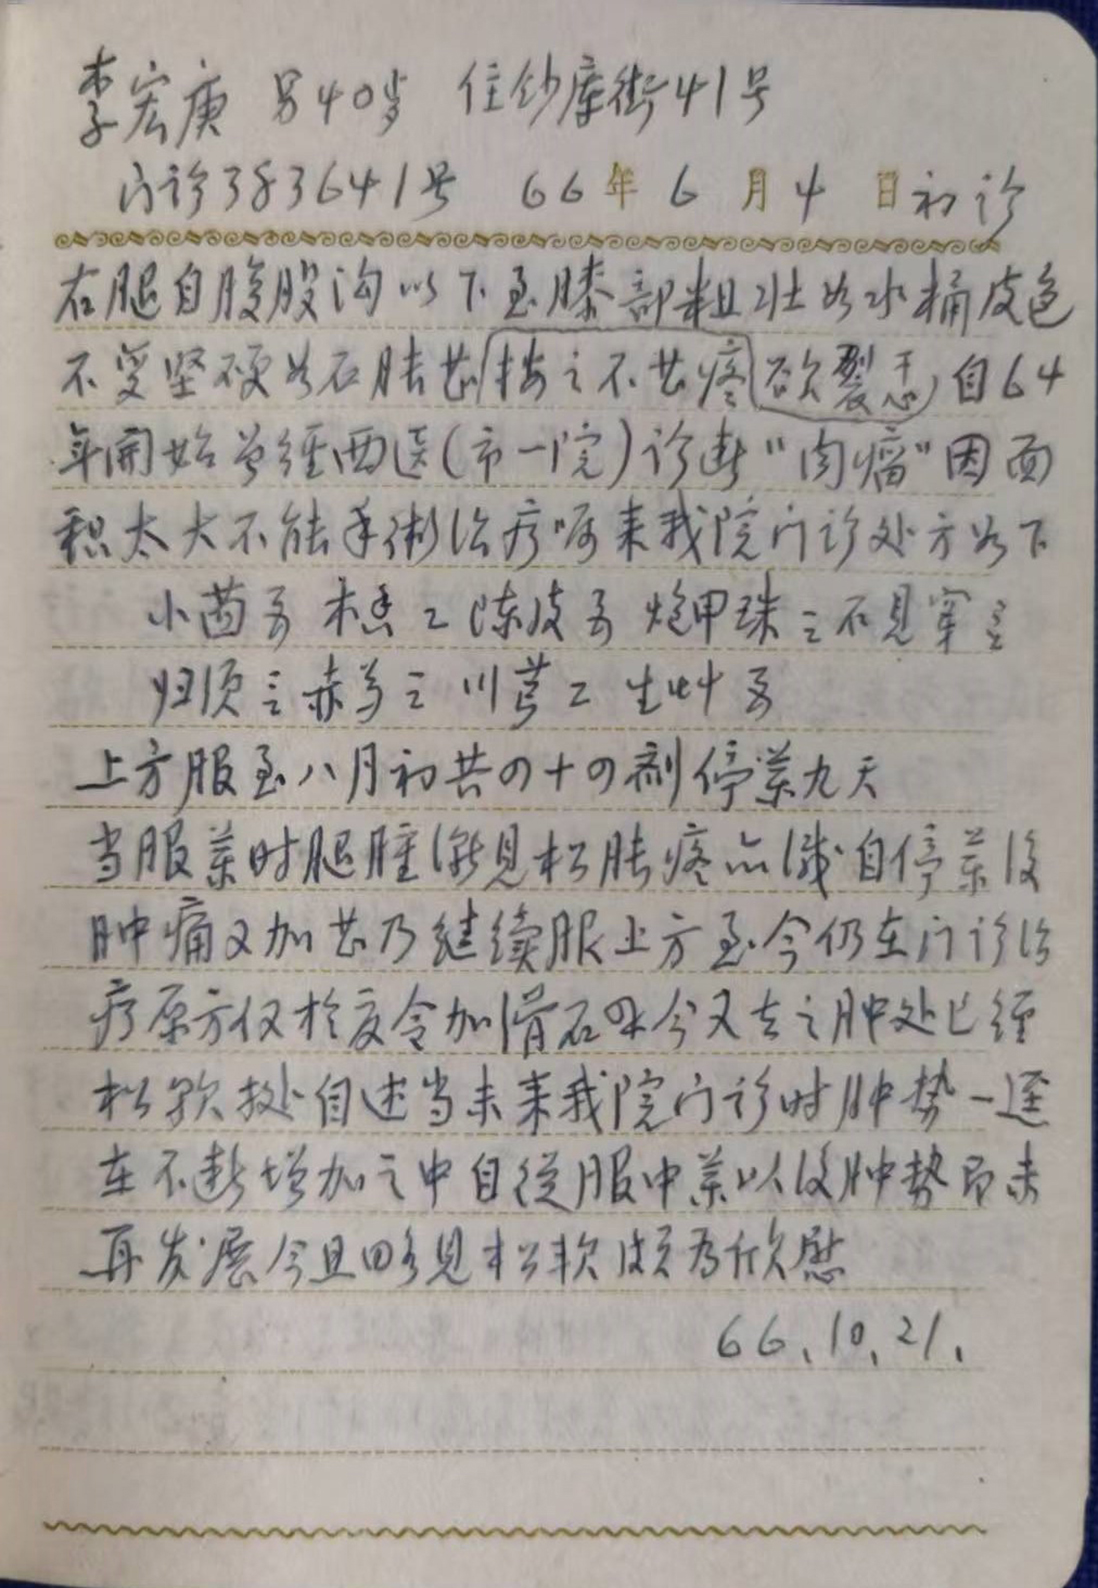 李宏庚 男40岁 住钞库街41号
门诊383641号 66年6月4日初诊
右腿自腹股沟以下至膝部粗壮如水桶皮色
不变坚硬如石胀甚按之不甚疼欲裂 自64
年开始曾经西医(市一院)诊断"肉瘤"因面
积太大不能手術治疗嘱来我院门诊处方如下
小茴 木香 陈皮 炮甲珠 石見穿
归须 赤芍 川芎 生草
上方服至八月初共四十四剂停药九天
当服药时腿腫漸見松胀疼亦减自停药後
肿痛又加甚乃继续服上方至今仍在门诊治
疗原方仅於夏令加滑石 今又去之肿处已經
松软 自述当未来我院门诊时肿势一逕
在不断增加之中自從服中药以後肿势即未
再发展今且略見松软颇为欣慰
66.10.21.